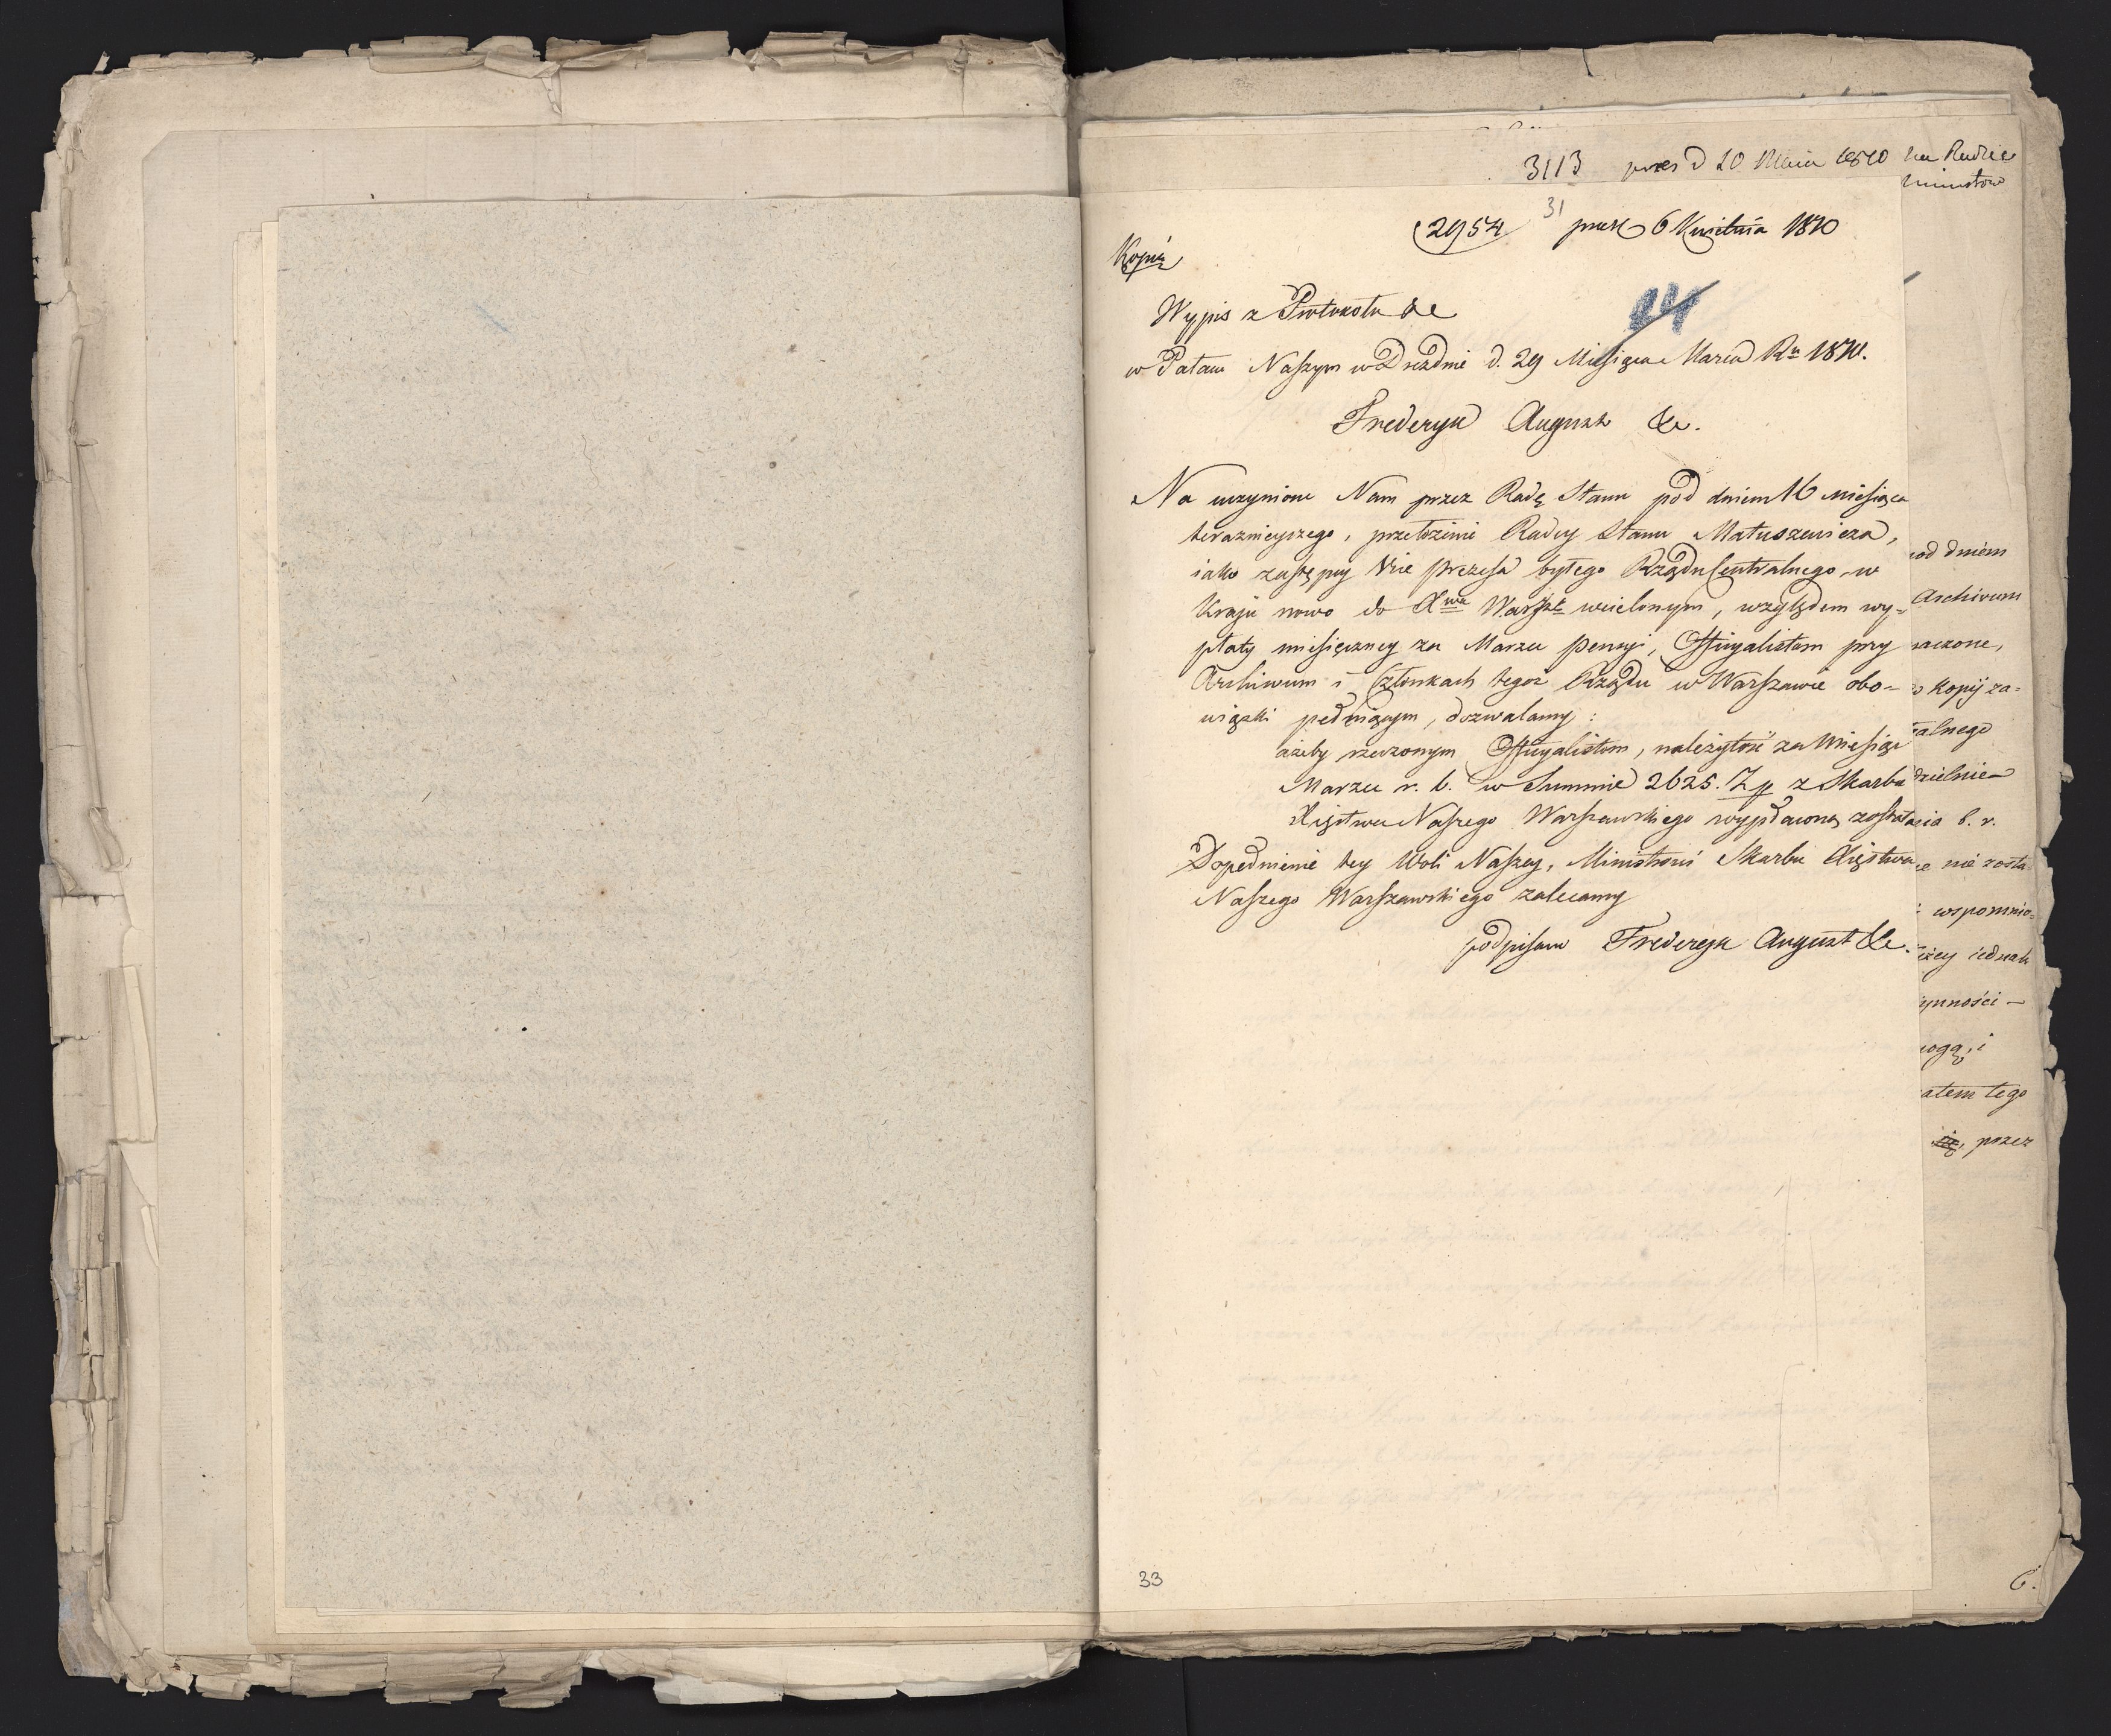 3113 prez d 20 Maia 1810 na Radzie
Ministrów
31
2954 prez 6 Kwietnia 1810
Kopia
Wypis z Protokołu &c
w Pałacu Naszym w Dreźnie d. 29 Miesiąca Marca Ru 1810.
Frederyk August &c.
Na uczynione Nam przez Radę Stanu pod dniem 16 miesiąca
teraznieyszego, przełożenie Radcy Stanu Matuszewicza,
iako zastępcy Vice Prezesa byłego Rządu Centralnego w
Kraju nowo do Xwa Warszo wcielonym, względem wy=
płaty miesięczney za Marzec pensyi, Officyalistom przy
Archiwum i Członkach tegoż Rządu w Warszawie obo=
wiązki pełniącym, dozwalamy:
ażeby rzeczonym Officyalistom, należytość za Miesiąc
Marzec r. b. w Summie 2625. Zp z Skarbu
Xięstwa Naszego Warszawskiego wypłacona została
Dopełnienie tey Woli Naszey, Ministrowi Skarbu Xięstwa
Naszego Warszawskiego zalecamy
podpisano Frederyk August &c.
od dniem
Archivum
naczone,
kopij za=
alnego
dzielnie
nia b. r.
nie zosta
wspomnio=
iey iednak
ynności
ogą, i
atem tego
przez
33
6.